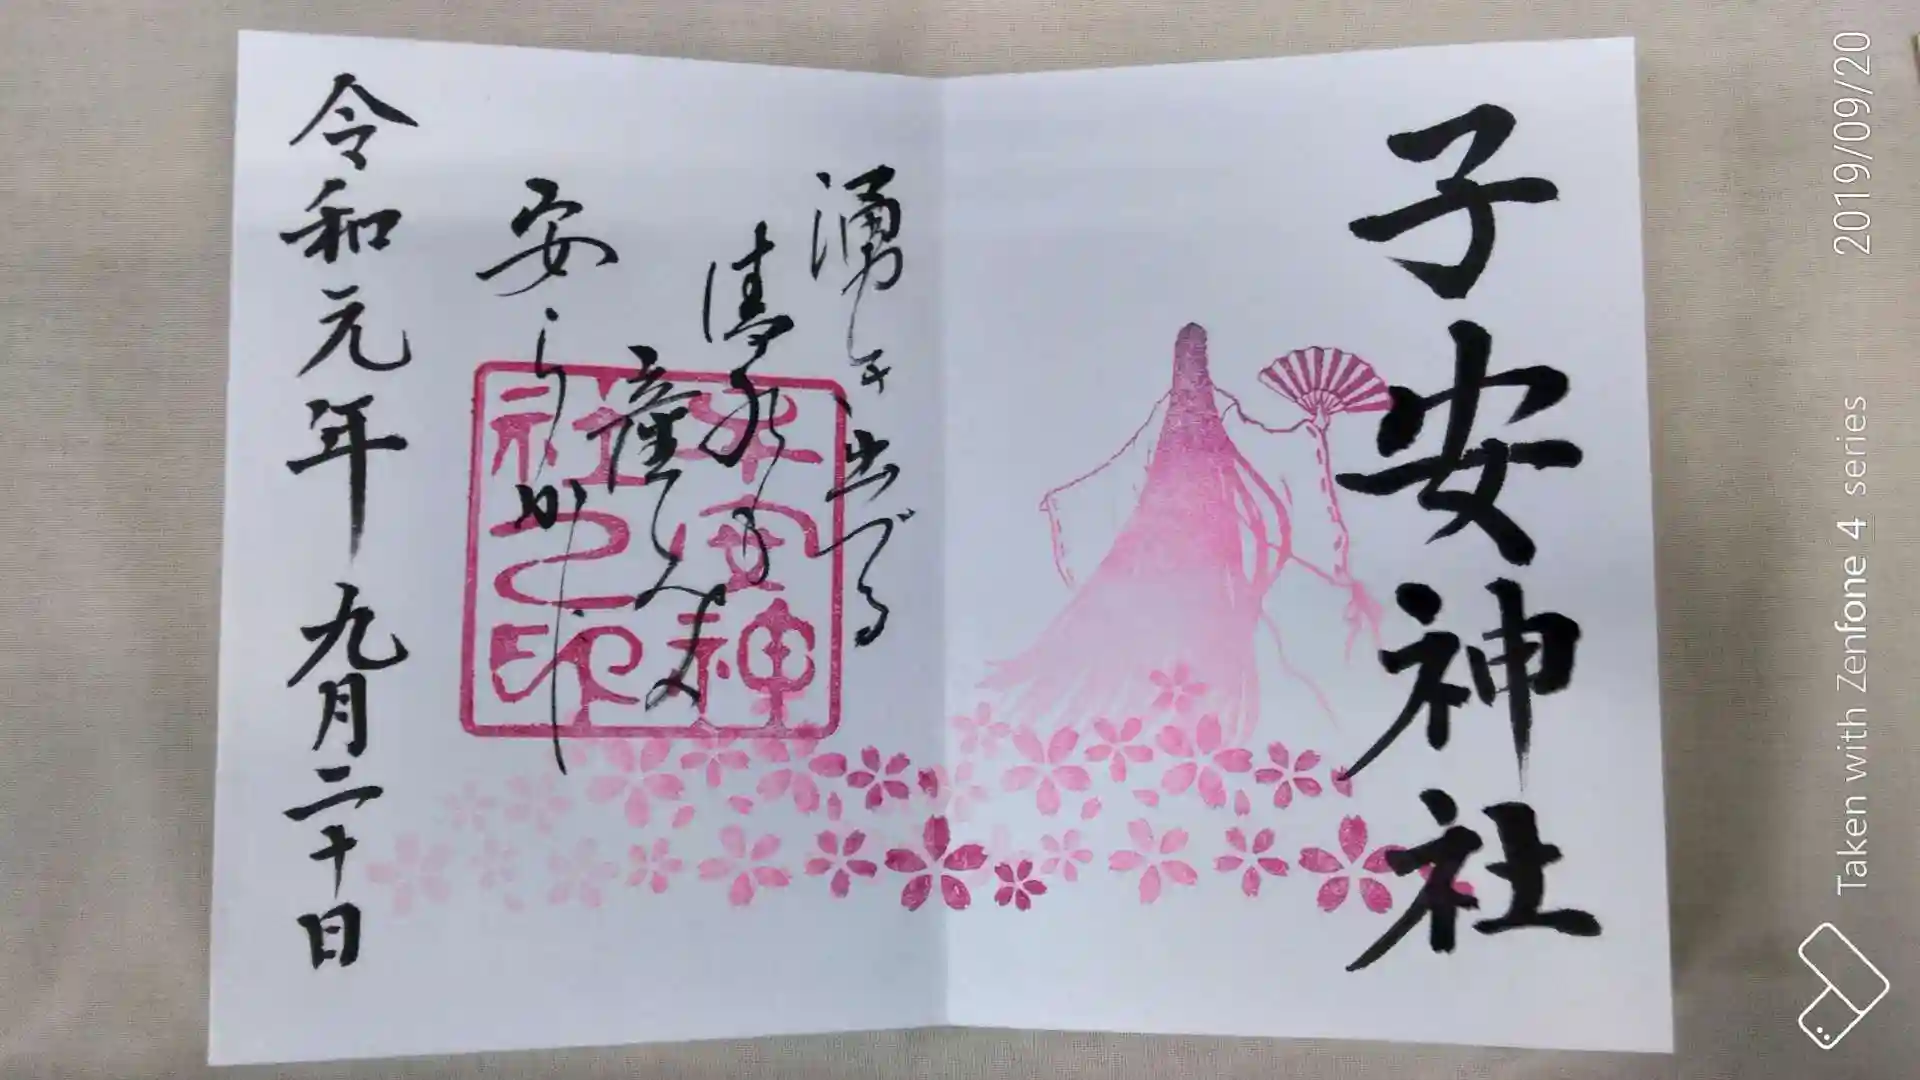 子安神社
湧き出づる
清水
産
安らか
子安神
社之印
令和元年 九月二十日
2019/09/20
Taken with Zenfone 4 series